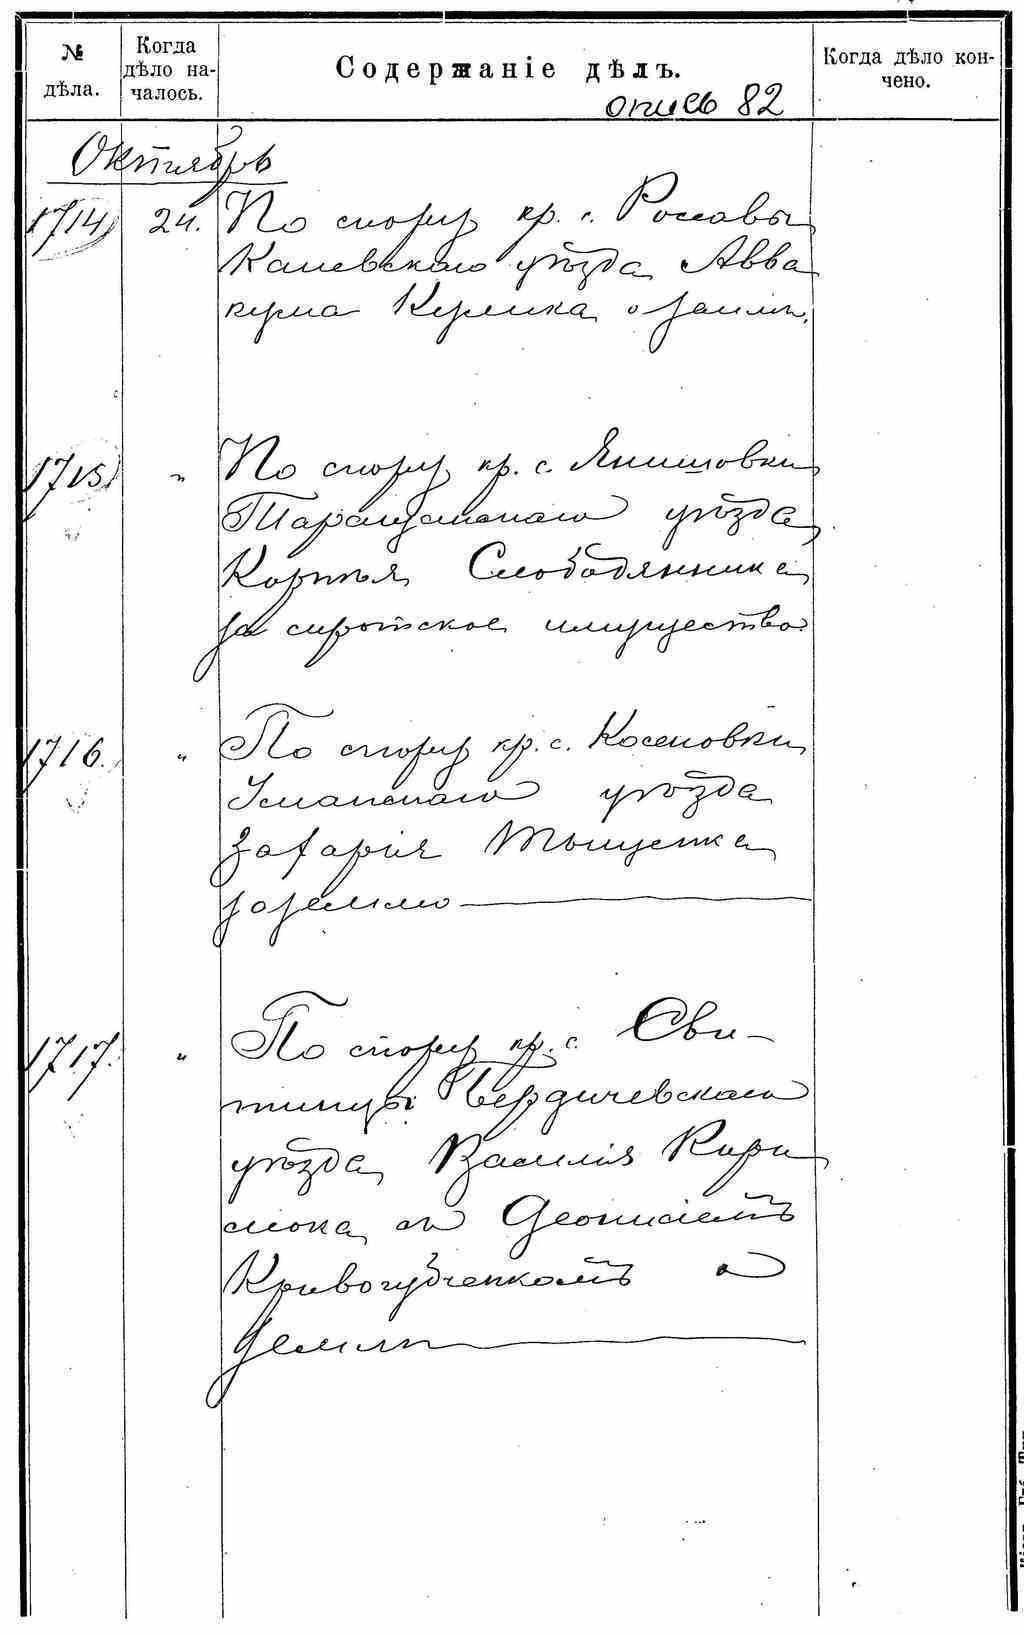 № дѣла.
Когда дѣло на-
чалось.
Содержаніе дѣлъ.
Когда дѣло кон-
чено.
опись 82
Октябрь
1714 24. По спору кр. с. Россавы
Каневскаго уѣзда Авва
кума Кулика о землѣ.
1715 " По спору кр. с. Янишовки
Таращанскаго уѣзда
Корнѣя Слободянника
за сиротское имущество
1716. " По спору кр. с. Косеновки
Уманскаго уѣзда
Захарія Тыщенка
за землю
1717. " По спору кр. с. Сви-
тинцы Бердичевскаго
уѣзда Василія
съ Деонисіемъ
Кривогубченкомъ о
землѣ